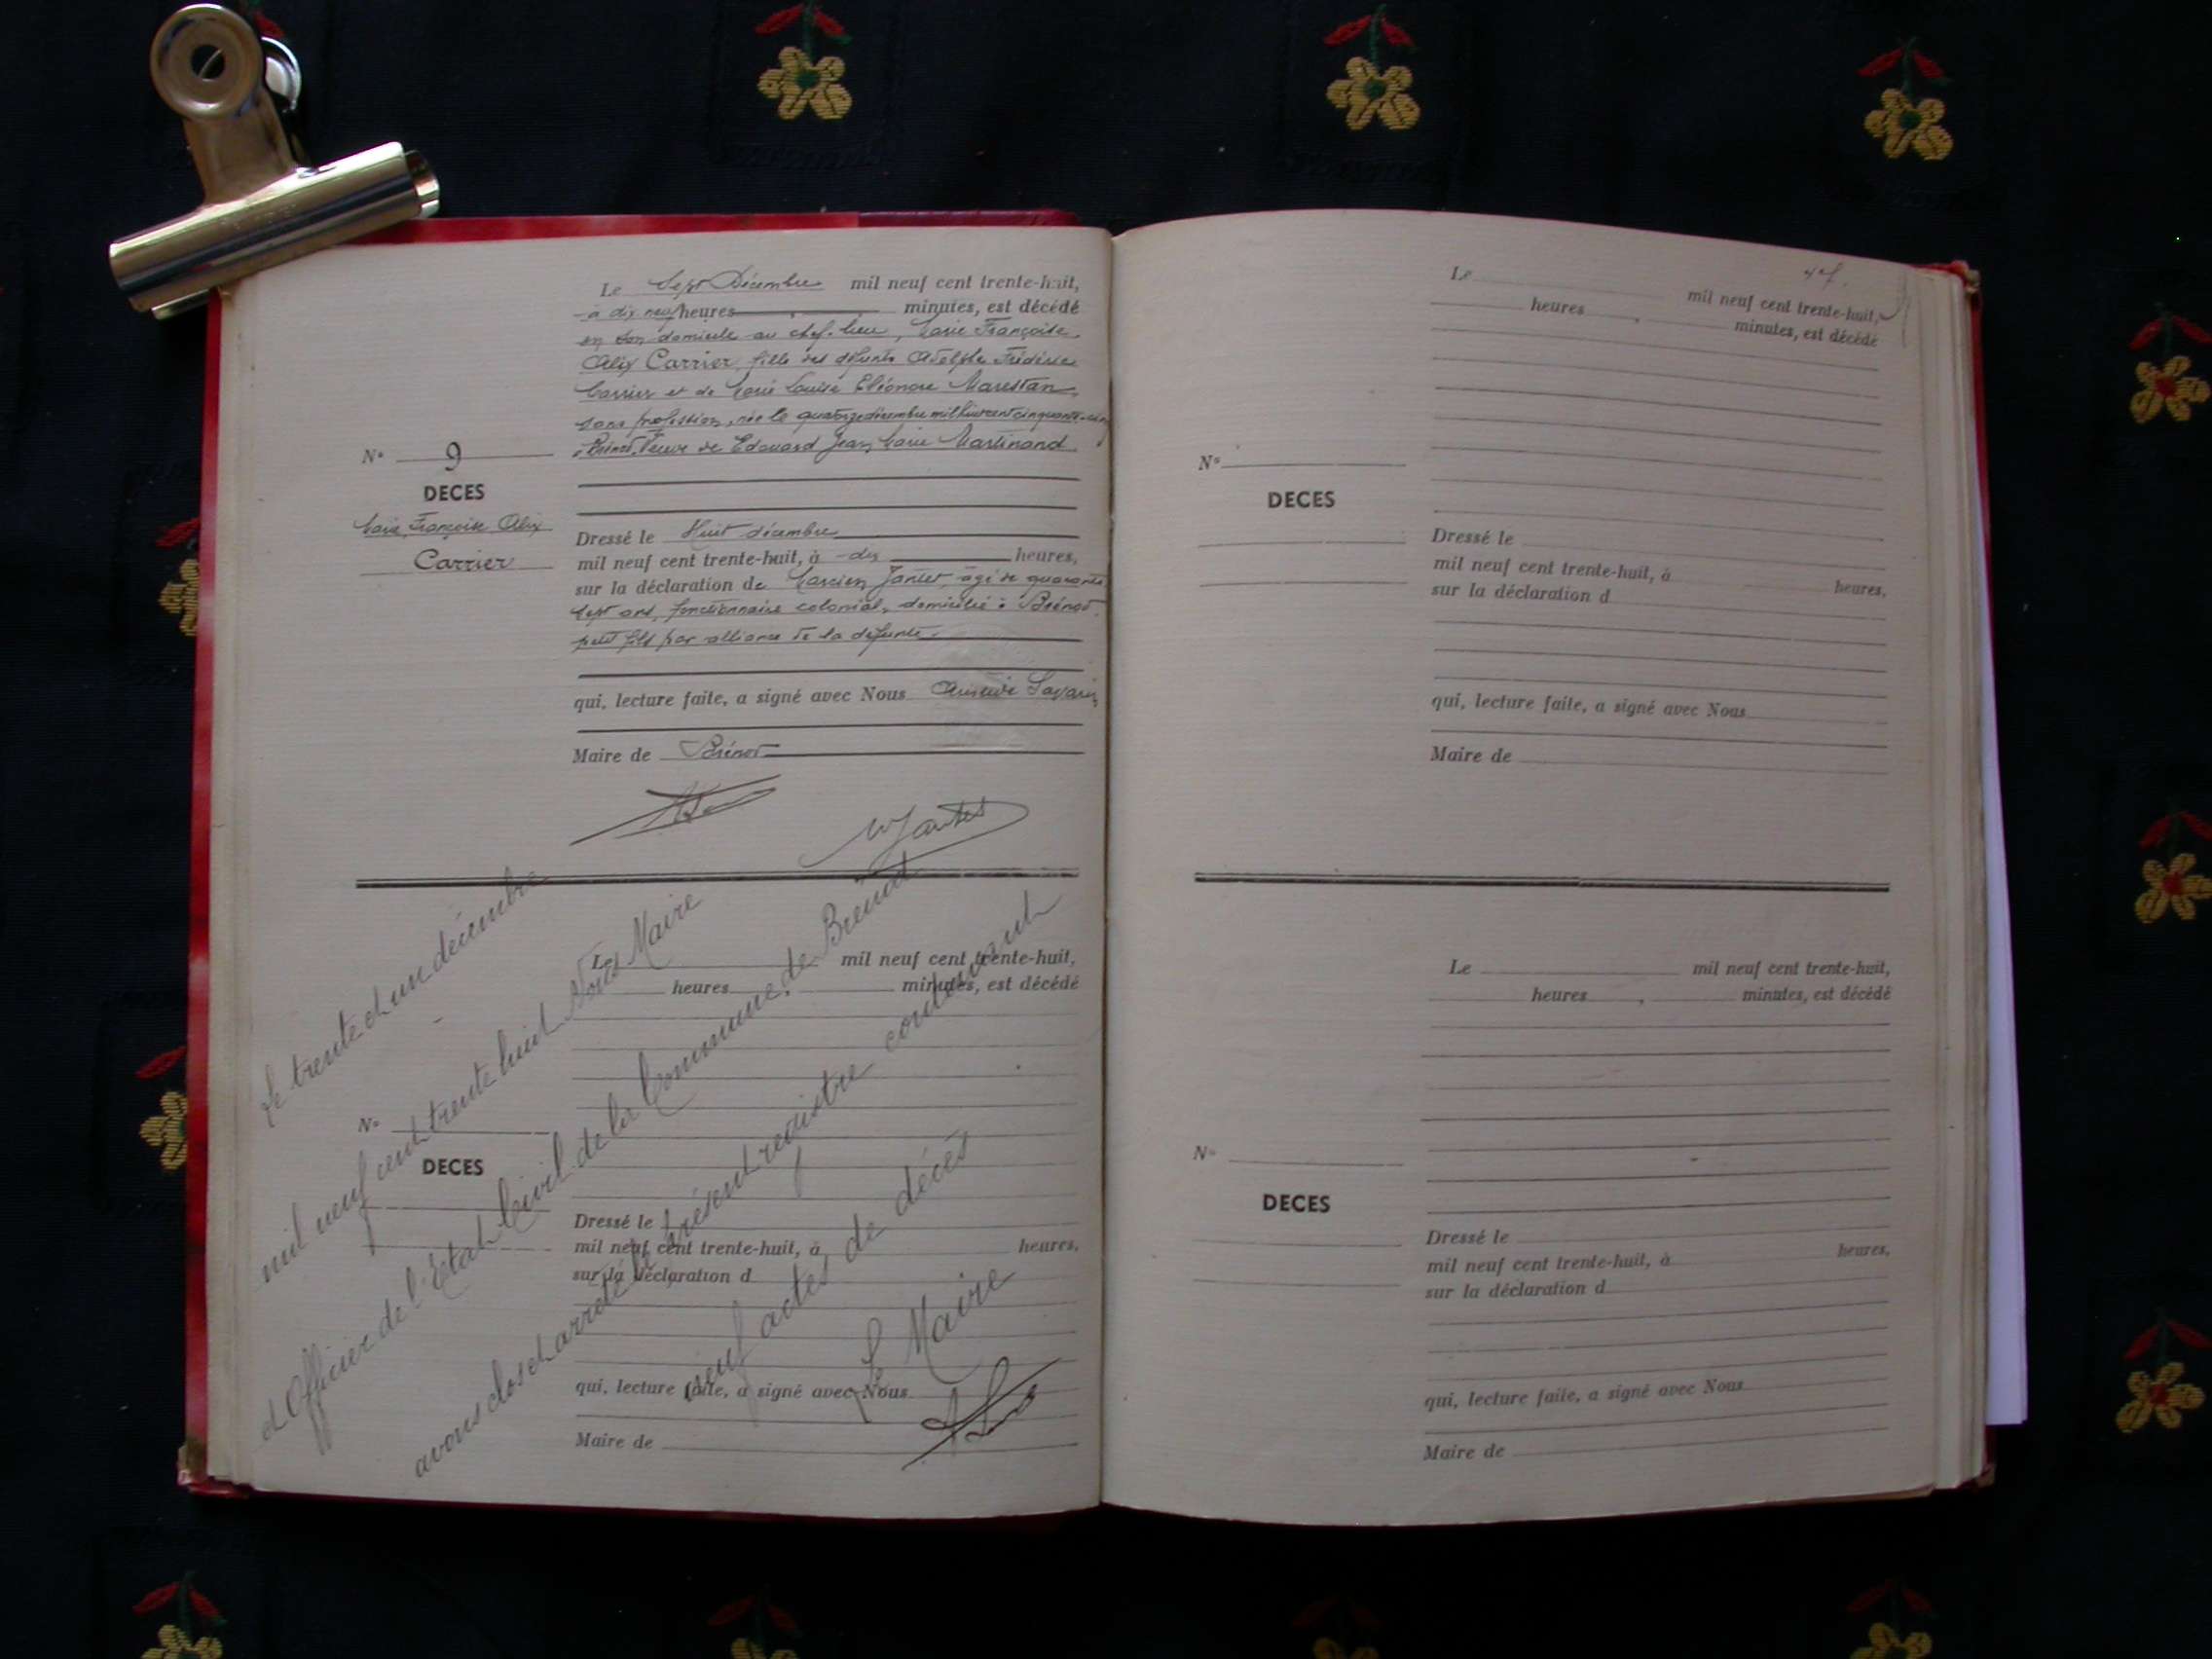 Le Sept Décembre mil neuf cent trente-huit,
à dix neuf heures , minutes, est décédé
en son domicile au chef-lieu, Marie Françoise
Alix Carrier, fille des défunts Adolphe Frédéric
Carrier et de Marie Louise Eléonore Marestan
sans profession, née le quatorze décembre mil huit cent cinquante-cinq
à Brénod, Veuve de Edouard Jean Marie Martinand
N° 9
DECES
Marie Françoise Alix
Carrier
Dressé le Huit décembre
mil neuf cent trente-huit, à dix heures,
sur la déclaration de Jantet, âgé de quarante
sept ans, fonctionnaire colonial, domicilié à Brénod
petit fils par alliance de la défunte.
qui, lecture faite, a signé avec Nous Savarin
Maire de Brénod
Jantet
Le trente et un décembre
mil neuf cent trente huit Nous Maire
et Officier de l'Etat Civil de la Commune de Brénod
avons clos et arrêté le présent registre contenant
neuf actes de décès
Le Maire
Le mil neuf cent trente-huit,
heures , minutes, est décédé
N°
DECES
Dressé le
mil neuf cent trente-huit, à heures,
sur la déclaration d
qui, lecture faite, a signé avec Nous
Maire de
Le mil neuf cent trente-huit,
heures , minutes, est décédé
N°
DECES
Dressé le
mil neuf cent trente-huit, à heures,
sur la déclaration d
qui, lecture faite, a signé avec Nous
Maire de
Le mil neuf cent trente-huit,
heures , minutes, est décédé
N°
DECES
Dressé le
mil neuf cent trente-huit, à heures,
sur la déclaration d
qui, lecture faite, a signé avec Nous
Maire de